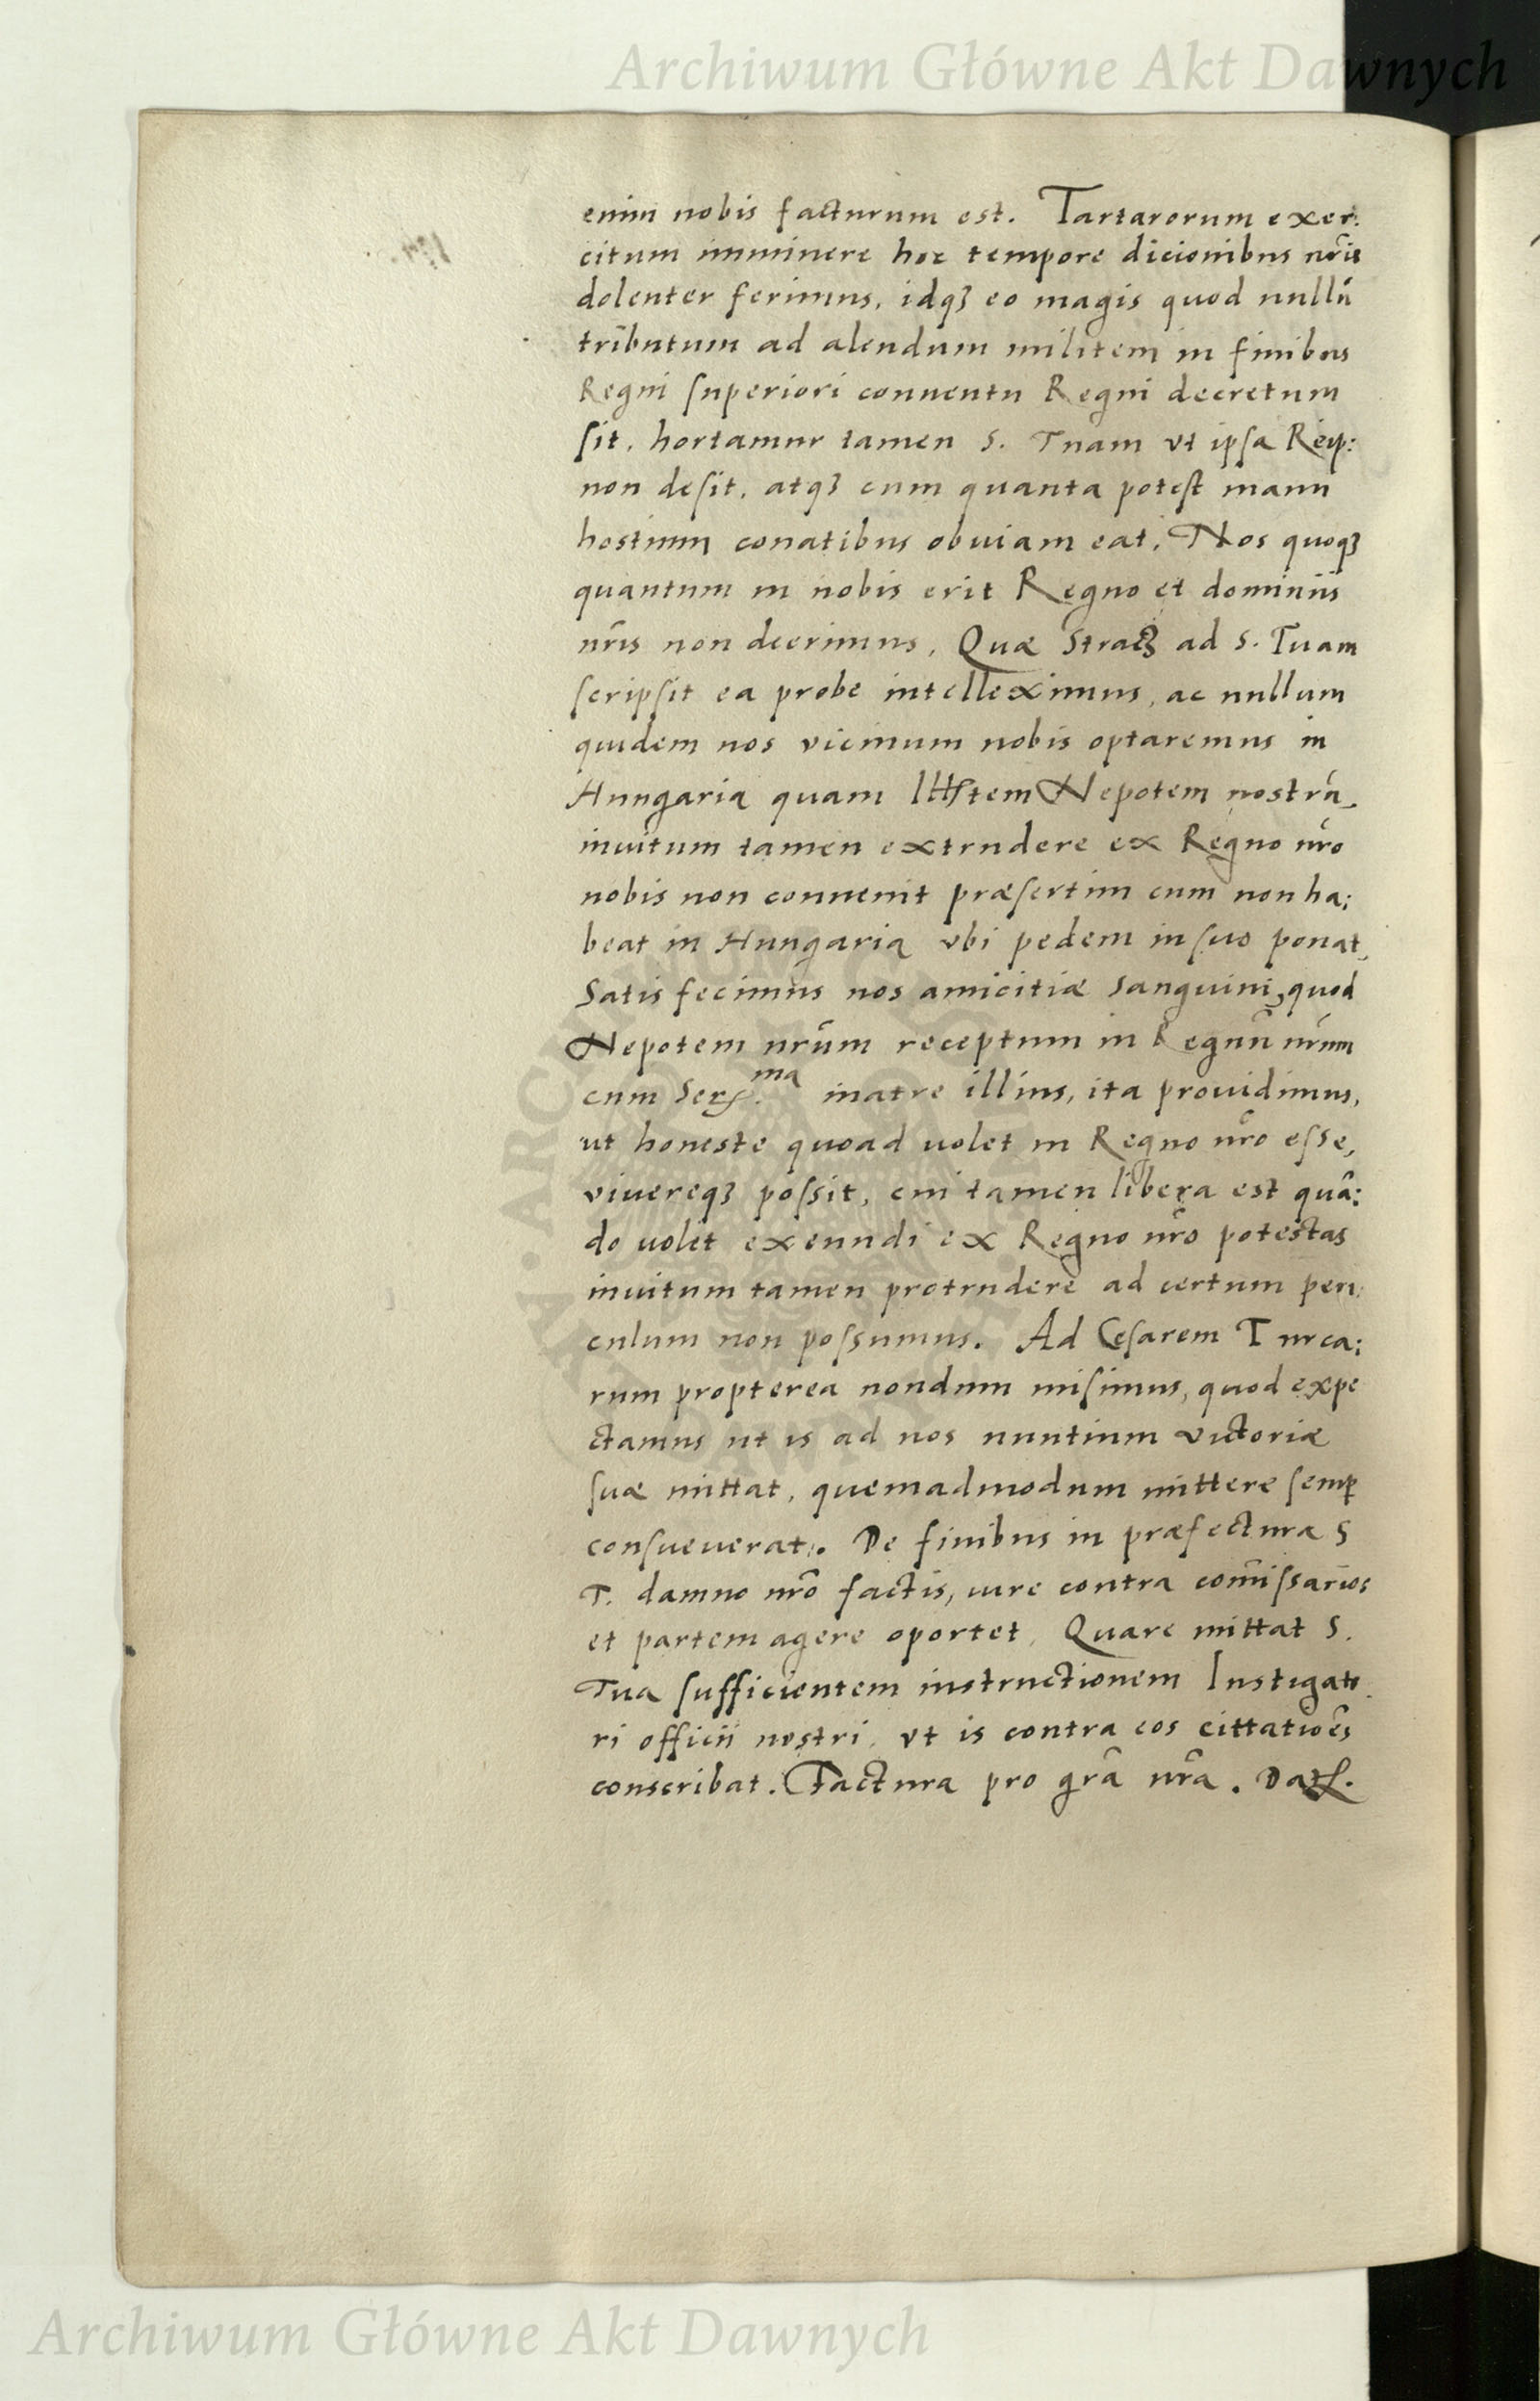 Archiwum Główne Akt Dawnych
enim nobis facturum est. Tartarorum exer:
citum imminere hoc tempore dicionibus nr̃is
dolenter ferimus, idqꝫ eo magis quod nullũ
tributum ad alendum militem in finibus
Regni superiori conuentu Regni decretum
sit, hortamur tamen S. Tuam vt ipsa Reip:
non desit, atqꝫ cum quanta potest manu
hostium conatibus obuiam eat. Nos quoqꝫ
quantum in nobis erit Regno et dominiis
nr̃is non deerimus. Quæ ad S. Tuam
scripsit ea probe intelleximus, ac nullum
quidem nos vicinum nobis optaremus in
Hungaria quam Nepotem nostrũ,
inuitum tamen extrudere ex Regno nr̃o
nobis non conuenit præsertim cum non ha:
beat in Hungaria vbi pedem in suo ponat,
Satis fecimus nos amicitiæ sanguiniqꝫ quod
Nepotem nr̃um receptum in Regnũ nr̃um
cum Ser.ma matre illius, ita prouidimus,
ut honeste quoad uolet in Regno nr̃o esse,
viuereqꝫ possit, cui tamen libera est quã:
do uolet exeundi ex Regno nr̃o potestas
inuitum tamen protrudere ad certum peri:
culum non possumus. Ad Cesarem Turca:
rum propterea nondum misimus, quod expe
ctamus ut is ad nos nuntium victoriæ
suæ mittat, quemadmodum mittere semꝑ
consueuerat. De finibus in præfectura S
T. damno nr̃o factis, iure contra com̃issarios
et partem agere oportet. Quare mittat S.
Tua sufficientem instructionem Instigato
ri officii nostri, vt is contra eos cittatiões
conscribat. Factura pro gr̃a nr̃a. Dat.
Archiwum Główne Akt Dawnych